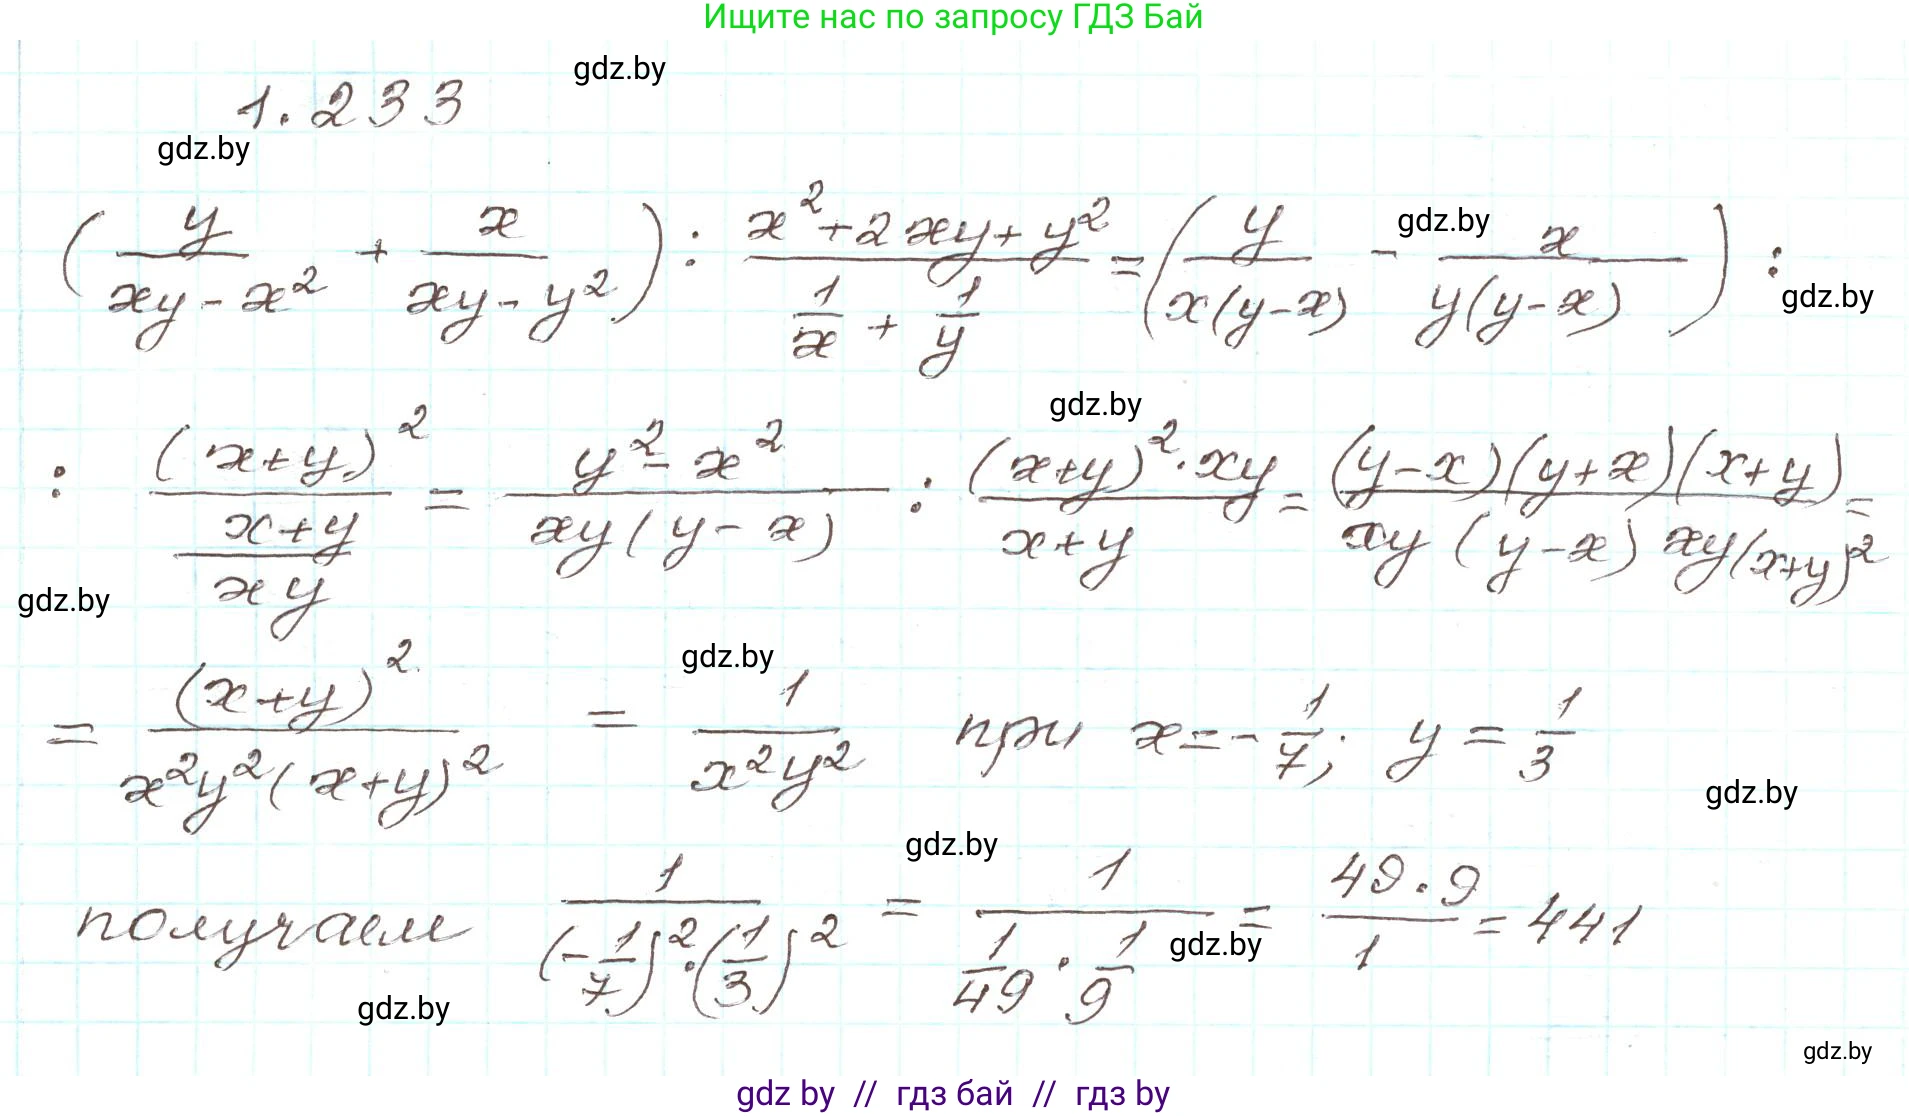 Ищите нас по запросу ГДЗ Бай
gdz.by
1.233
gdz.by
(y/(xy-x²) + x/(xy-y²)) : (x²+2xy+y²)/(1/x + 1/y) = (y/(x(y-x)) - x/(y(y-x))) :
gdz.by
gdz.by
gdz.by
: (x+y)²/((x+y)/(xy)) = (y²-x²)/(xy(y-x)) : ((x+y)²·xy)/(x+y) = ((y-x)(y+x)(x+y))/(xy(y-x)xy(x+y)²) =
gdz.by
gdz.by
= (x+y)²/(x²y²(x+y)²) = 1/(x²y²) при x=-1/7; y=1/3
gdz.by
gdz.by
получаем 1/((-1/7)²·(1/3)²) = 1/(1/49·1/9) = (49·9)/1 = 441
gdz.by
gdz.by
gdz.by
gdz by // гдз бай // гдз by